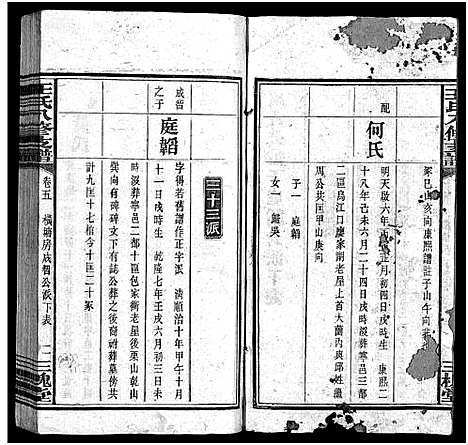 王氏八修支譜
冢巳山亥向康熙譜註子山午向
配
何氏
明天啟六年丙 正月初四日戌時生 康熙二
十八年己未六月二十四日戌時沒葬寧邑三都
二區烏江口廖家洞老屋上首大 內與邱姓
周公共匡甲山庚向
子一 庭韜
女一 歸吳
三槐堂
成晉
之子
庭韜
三十三派
字得若舊譜作正字派 清順治十年甲午十月
十一日戌時生 乾隆七年壬戌六月初三日未
時沒葬寧邑二都十區包家衝老屋後栗山乾山
巽向有碑碑文下有誌公葬之後裔附葬墓傍共
計九匡十七棺今十匡二十冢
王氏八修支譜
卷五 橫塘房成個公派下表
三槐堂